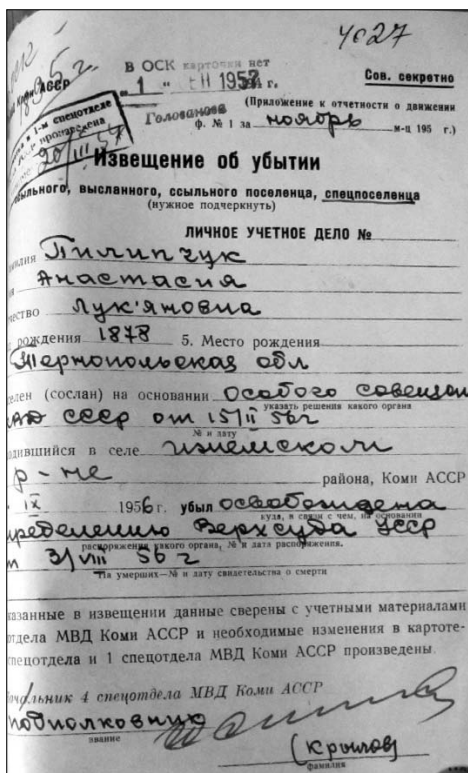 4027
В ОСК карточки нет
„ 1 " 1957 г.
Сов. секретно
(Приложение к отчетности о движении
Голованова
ф. № 1 за ноябрь м-ц 195 г.)
в 1-м спецотделе
проверена
20/III 57
Извещение об убытии
сыльного, высланного, ссыльного поселенца, спецпоселенца
(нужное подчеркнуть)
ЛИЧНОЕ УЧЕТНОЕ ДЕЛО №
милия Пилипчук
Анастасия
чество Лук'яновна
рождения 1878 5. Место рождения
Тернопольская обл
селен (сослан) на основании Особого совещан
указать решения какого органа
СССР от 15/II 56 г
№ и дату
одившийся в селе Ижемском
р-не района, Коми АССР
IX 1956 г. убыл освобождена
куда, в связи с чем, на основании
определению Верхсуда УССР
распоряжения какого органа, № и дата распоряжения.
т 3/VIII 56 г
На умерших—№ и дату свидетельства о смерти
казанные в извещении данные сверены с учетными материалами
отдела МВД Коми АССР и необходимые изменения в картоте-
спецотдела и 1 спецотдела МВД Коми АССР произведены.
Начальник 4 спецотдела МВД Коми АССР
подполковник
звание
(Крылов)
фамилия